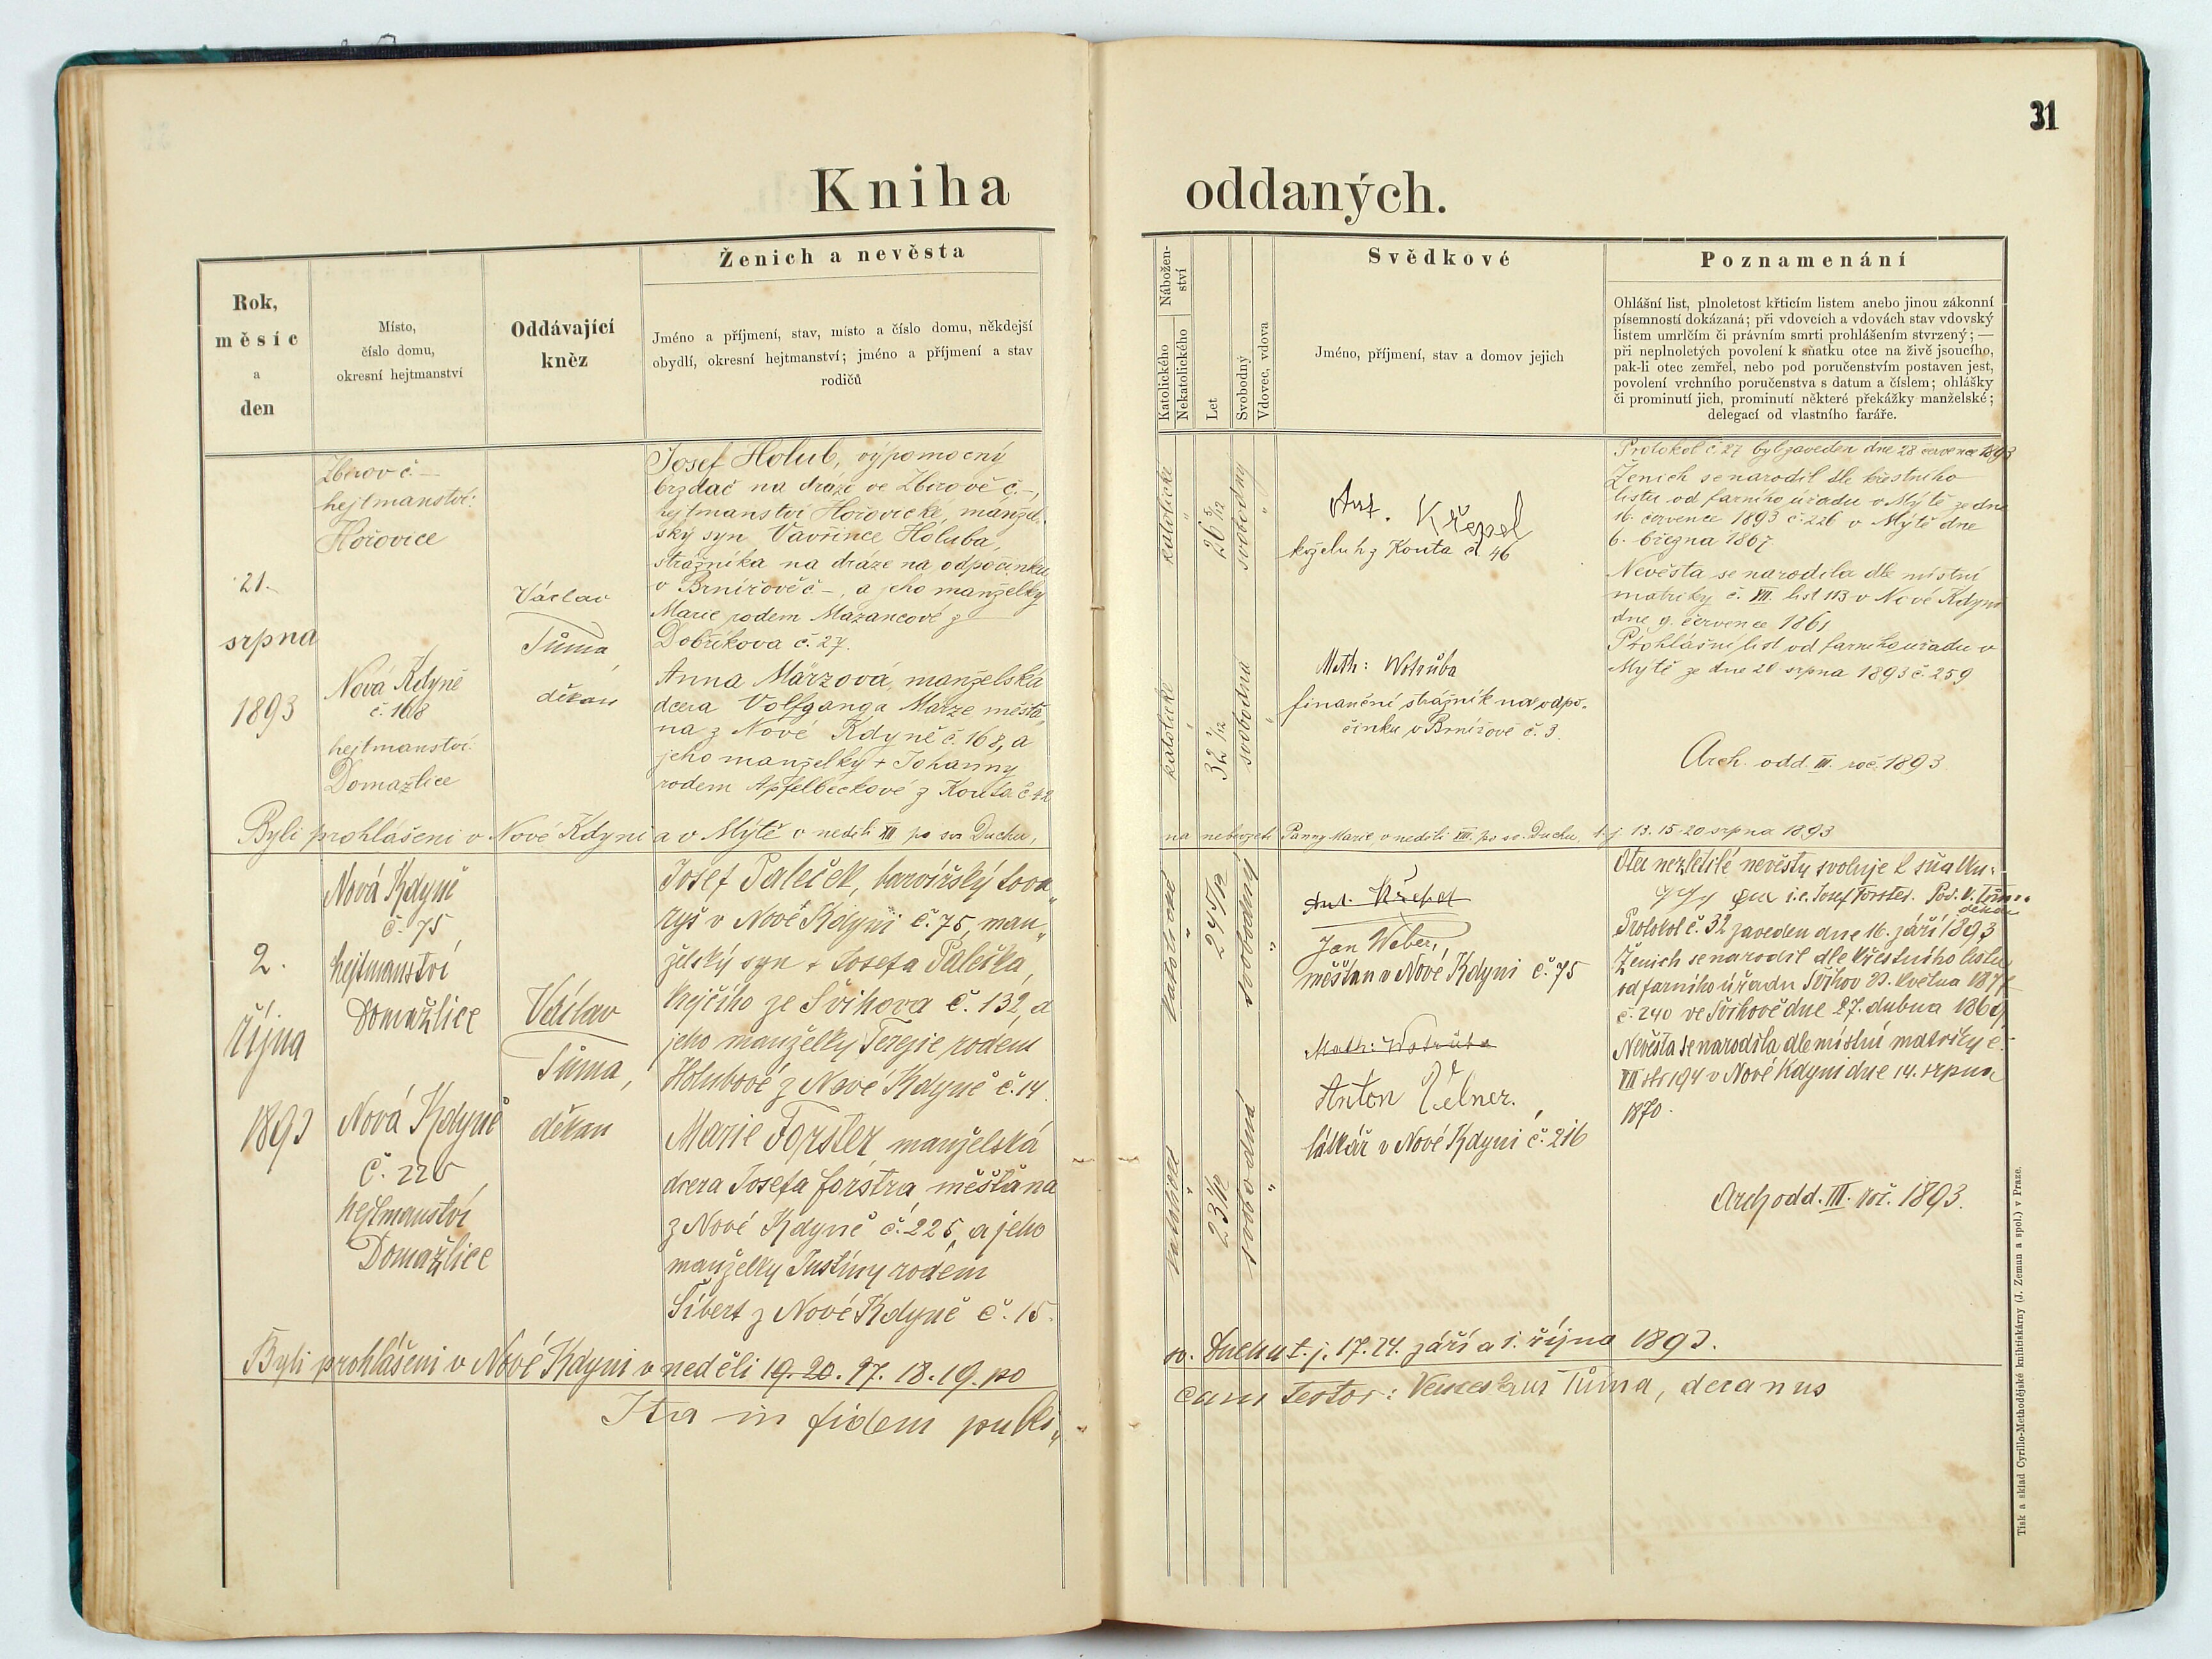 31
Kniha oddaných.
Rok,
měsíc
a
den
Místo,
číslo domu,
okresní hejtmanství
Oddávající
kněz
Ženich a nevěsta
Jméno a příjmení, stav, místo a číslo domu, někdejší
obydlí, okresní hejtmanství; jméno a příjmení a stav
rodičů
Nábožen-
ství
Katolického
Nekatolického
Let
Svobodný
Vdovec, vdova
Svědkové
Jméno, příjmení, stav a domov jejich
Poznamenání
Ohlášní list, plnoletost křticím listem anebo jinou zákonní
písemností dokázaná; při vdovcích a vdovách stav vdovský
listem umrlčím či právním smrti prohlášením stvrzený; —
při neplnoletých povolení k sňatku otce na živě jsoucího,
pak-li otec zemřel, nebo pod poručenstvím postaven jest,
povolení vrchního poručenstva s datum a číslem; ohlášky
či prominutí jich, prominutí některé překážky manželské;
delegací od vlastního faráře.
21.
srpna
1893
Zbirov č. –
hejtmanství:
Hořovice
Nová Kdyně
č. 168
hejtmanství:
Domažlice
Václav
Tůma,
děkan
Josef Holub, výpomocný
brzdač na dráze ve Zbirově č. –,
hejtmanství Hořovické, manžel-
ský syn Vavřince Holuba,
strážníka na dráze na odpočinku
v Brnířově č –, a jeho manželky
Marie rodem Mazancové z
Dobříkova č. 27.
Anna Märzová, manželská
dcera Volfganga Märze měšťa„
na z Nové Kdyně č. 168, a
jeho manželky + Johanny
rodem Apfelbeckové z Kouta č 42
katolické
"
26 5/12
svobodný
"
katolické
"
32 1/12
svobodná
"
Ant. Křepel
koželuh z Kouta č 46
Math: Wotruba
finanční strážník na odpo-
činku v Brnířově č. 3.
Protokol č. 27 byl zaveden dne 28 července 1893
Ženich se narodil dle křestního
listu od farního úřadu v Mýtě ze dne
16. července 1893 č. 226 v Mýtě dne
6. března 1867.
Nevěsta se narodila dle místní
matriky č. VII. list 113 v Nové Kdyni
dne 9. července 1861
Prohlášní list od farního úřadu v
Mýtě ze dne 20 srpna 1893 č. 259
Arch. odd. III. roč. 1893.
Byli prohlášeni v Nové Kdyni a v Mýtě v neděli XII po sv. Duchu, na nebevzetí Panny Marie, v neděli XIII. po sv. Duchu, t. j. 13. 15. 20 srpna 1893
2.
října
1893
Nová Kdyně
č. 75
hejtmanství
Domažlice
Nová Kdyně
č. 225
hejtmanství
Domažlice
Václav
Tůma,
děkan
Josef Paleček, barvířský tova„
ryš v Nové Kdyni č. 75, man„
želský syn + Josefa Palečka,
krejčího ze Švihova č. 132, a
jeho manželky Terezie rodem
Holubové z Nové Kdyně č. 14.
Marie Forster, manželská
dcera Josefa Forstra měšťana
z Nové Kdyně č. 225, a jeho
manželky Justiny rodem
Šibert z Nové Kdyně č. 15.
katolické
"
24 5/12
svobodný
"
katolické
"
23 1/12
svobodná
"
Ant. Křepel
Jan Weber,
měšťan v Nové Kdyni č. 75
Math: Wotruba
Anton Zelner.
látkář v Nové Kdyni č. 216
Otec nezletilé nevěsty svoluje k sňatku:
i.e. Josef Forster. Pod. V. Tůma
děkan
Protokol č. 32 zaveden dne 16. září 1893
Ženich se narodil dle křestního listu
od farního úřadu Švihov 23. května
č. 240 ve Švihově dne 27. dubna 1869
Nevěsta se narodila dle místní matriky č.
VII str 194 v Nové Kdyni dne 14. srpna
1870.
Arch odd. III. roč. 1893.
Byli prohlášeni v Nové Kdyni v neděli 19. 20. 17. 18. 19. po sv. Duchu t. j. 17. 24. září a 1. října 1893.
Ita in fidem publi„ cam testor: Venceslaus Tůma, decanus
Tisk a sklad Cyrillo-Methodějské knihtiskárny (J. Zeman a spol.) v Praze.